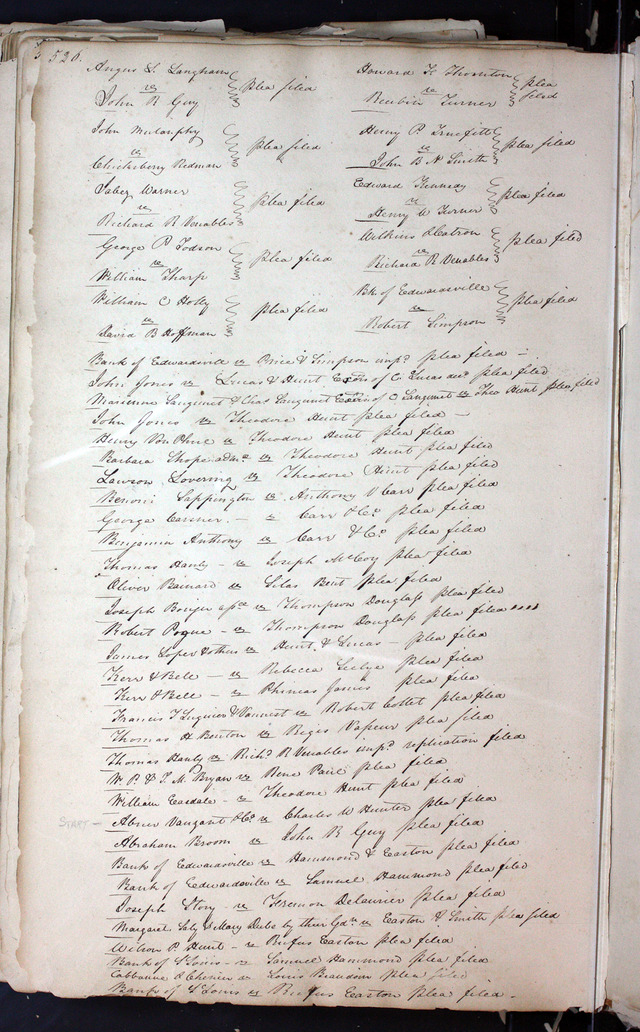 526.
Angus L. Langham
vs
John R Guy
plea filed
John Mulanphy
vs
Chickesberry Redman
plea filed
Jabez Warner
vs
Richard R Venables
plea filed
George P Todson
vs
William Tharp
plea filed
William C Hotty
vs
David B Hoffman
plea filed
Howard F. Thornton
vs
Reubin Turner
plea filed
Henry P Truefitt
vs
John B N Smith
plea filed
Edward Kennedy
vs
Henry W Korner
plea filed
Wilkins
vs
Richard R Venables
plea filed
Bk. of Edwardsville
vs
Robert Simpson
plea filed
Bank of Edwardsville vs Price & Simpson imp.d plea filed -
John Jones vs Lucas & Hunt Exors of C. Lucas plea filed
Sanguinet & Chas Sanguinet Exors of C Sanguinet vs Theo Hunt plea filed
John Jones vs Theodore Hunt plea filed -
Henry Von Phul vs Theodore Hunt plea filed
Barbara Shope adm.x vs Theodore Hunt plea filed
Lawson Lovering vs Theodore Hunt plea filed
Benoni Sappington vs Anthony V Carr plea filed
George Casner - vs Carr & Co. plea filed
Benjamin Anthony vs Carr & Co. plea filed
Thomas Hanly - vs Joseph McCoy plea filed
Oliver Bainard vs Silas Bent plea filed
Joseph vs Thompson Douglass plea filed
Robert Pogue - vs Thompson Douglass plea filed
James Loper & others vs Hunt & Lucas - plea filed
Kerr & Bell - vs Rebecca Seelye plea filed
Kerr & Bell - vs Phineas James plea filed
Francis T & Vannest vs Robert Collet plea filed
Thomas H Benton vs Regis Vapeur plea filed
Thomas Hanly vs Richd. R Venables imp.d replication filed
W P & J. M. Bryan vs Rene Paul plea filed
William Easdale - vs Theodore Hunt plea filed
START - Abner Vaugant & Co vs Charles W Hunter plea filed
Abraham Broom vs John R Guy plea filed
Bank of Edwardsville vs Hammond & Easton plea filed
Bank of Edwardsville vs Samuel Hammond plea filed
Joseph Story - vs Fremon Delaurier plea filed
Margaret & Mary Dubs by their Gdn. vs Easton & Smith plea filed
Wilson P Hunt - vs Rufus Easton plea filed
Bank of St Louis - vs Samuel Hammond plea filed
Cabbanne & Chenier vs Louis Beaudoin plea filed
Bank of St Louis vs Rufus Easton plea filed -